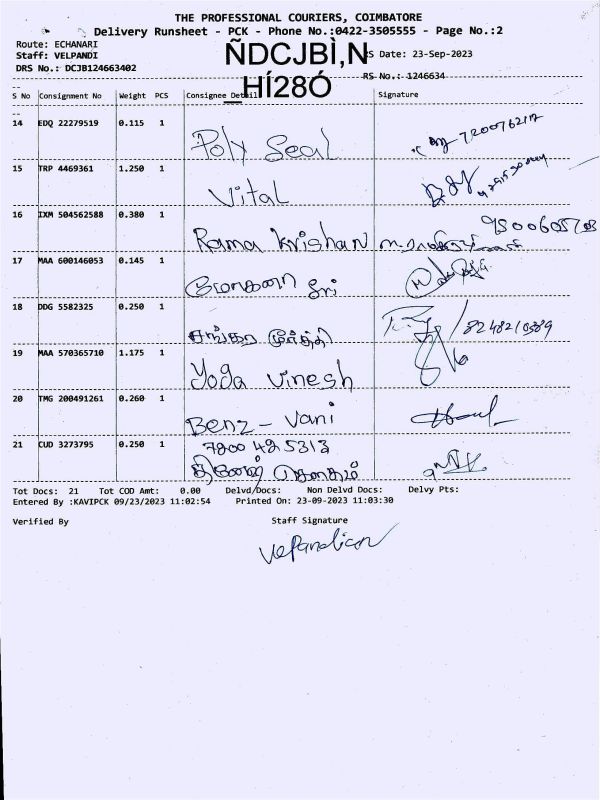 THE PROFESSIONAL COURIERS, COIMBATORE
Delivery Runsheet - PCK - Phone No.:0422-3505555 - Page No.:2
Route: ECHANARI
Staff: VELPANDI
RS Date: 23-Sep-2023
DRS No.: DCJB124663402
ÑDCJBÌ,N
HÍ28Ó
RS No.: 1246634
S No Consignment No Weight PCS Consignee Detail Signature
14 EDQ 22279519 0.115 1 Poly Seal 7200762117
15 TRP 4469361 1.250 1 Vital
16 IXM 504562588 0.380 1 Rama Krishan
17 MAA 600146053 0.145 1 மோகனா ஸ்ரீ
18 DDG 5582325 0.250 1 சங்கர மூர்த்தி
19 MAA 570365710 1.175 1 Yoga vinesh
20 TMG 200491261 0.260 1 Benz - vani
21 CUD 3273795 0.250 1 7200 42 5313
Tot Docs: 21 Tot COD Amt: 0.00 Delvd/Docs: Non Delvd Docs: Delvy Pts:
Entered By :KAVIPCK 09/23/2023 11:02:54 Printed On: 23-09-2023 11:03:30
Verified By Staff Signature
Velpandian